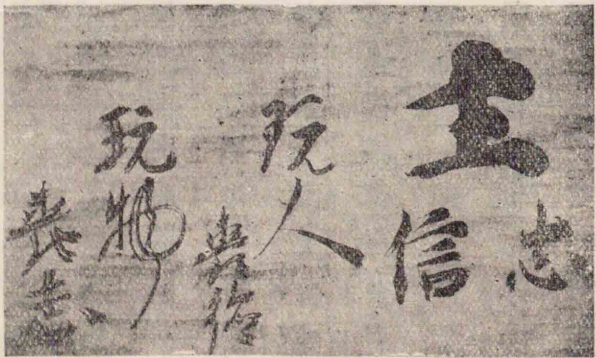 主
忠
信
玩人
喪德
玩物
喪志